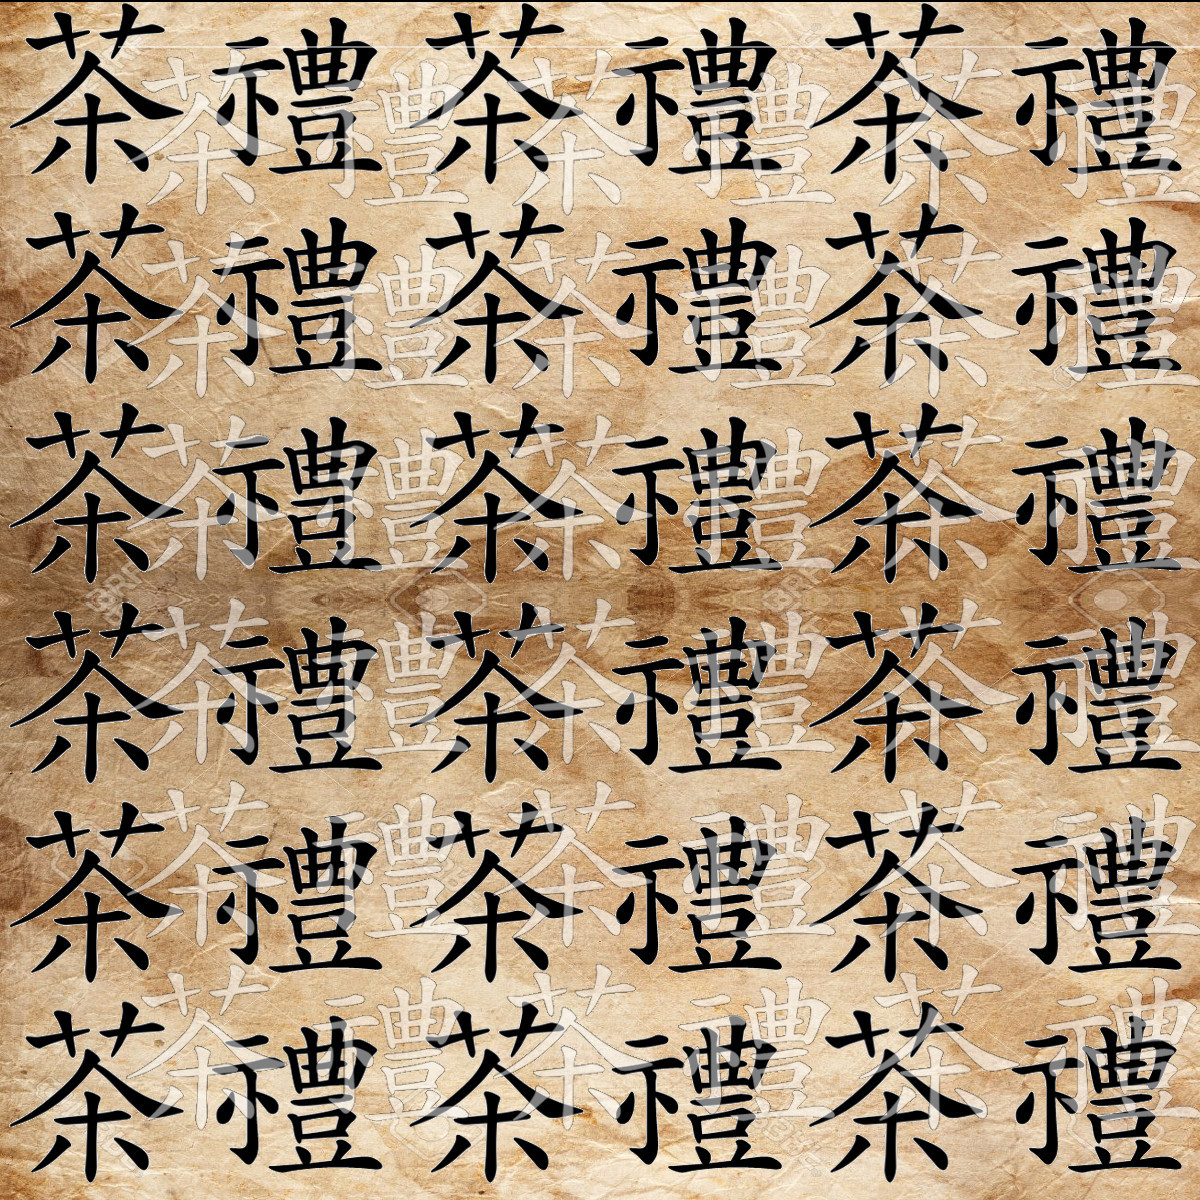 茶禮茶禮茶禮
茶禮茶禮茶禮
茶禮茶禮茶禮
茶禮茶禮茶禮
茶禮茶禮茶禮
茶禮茶禮茶禮